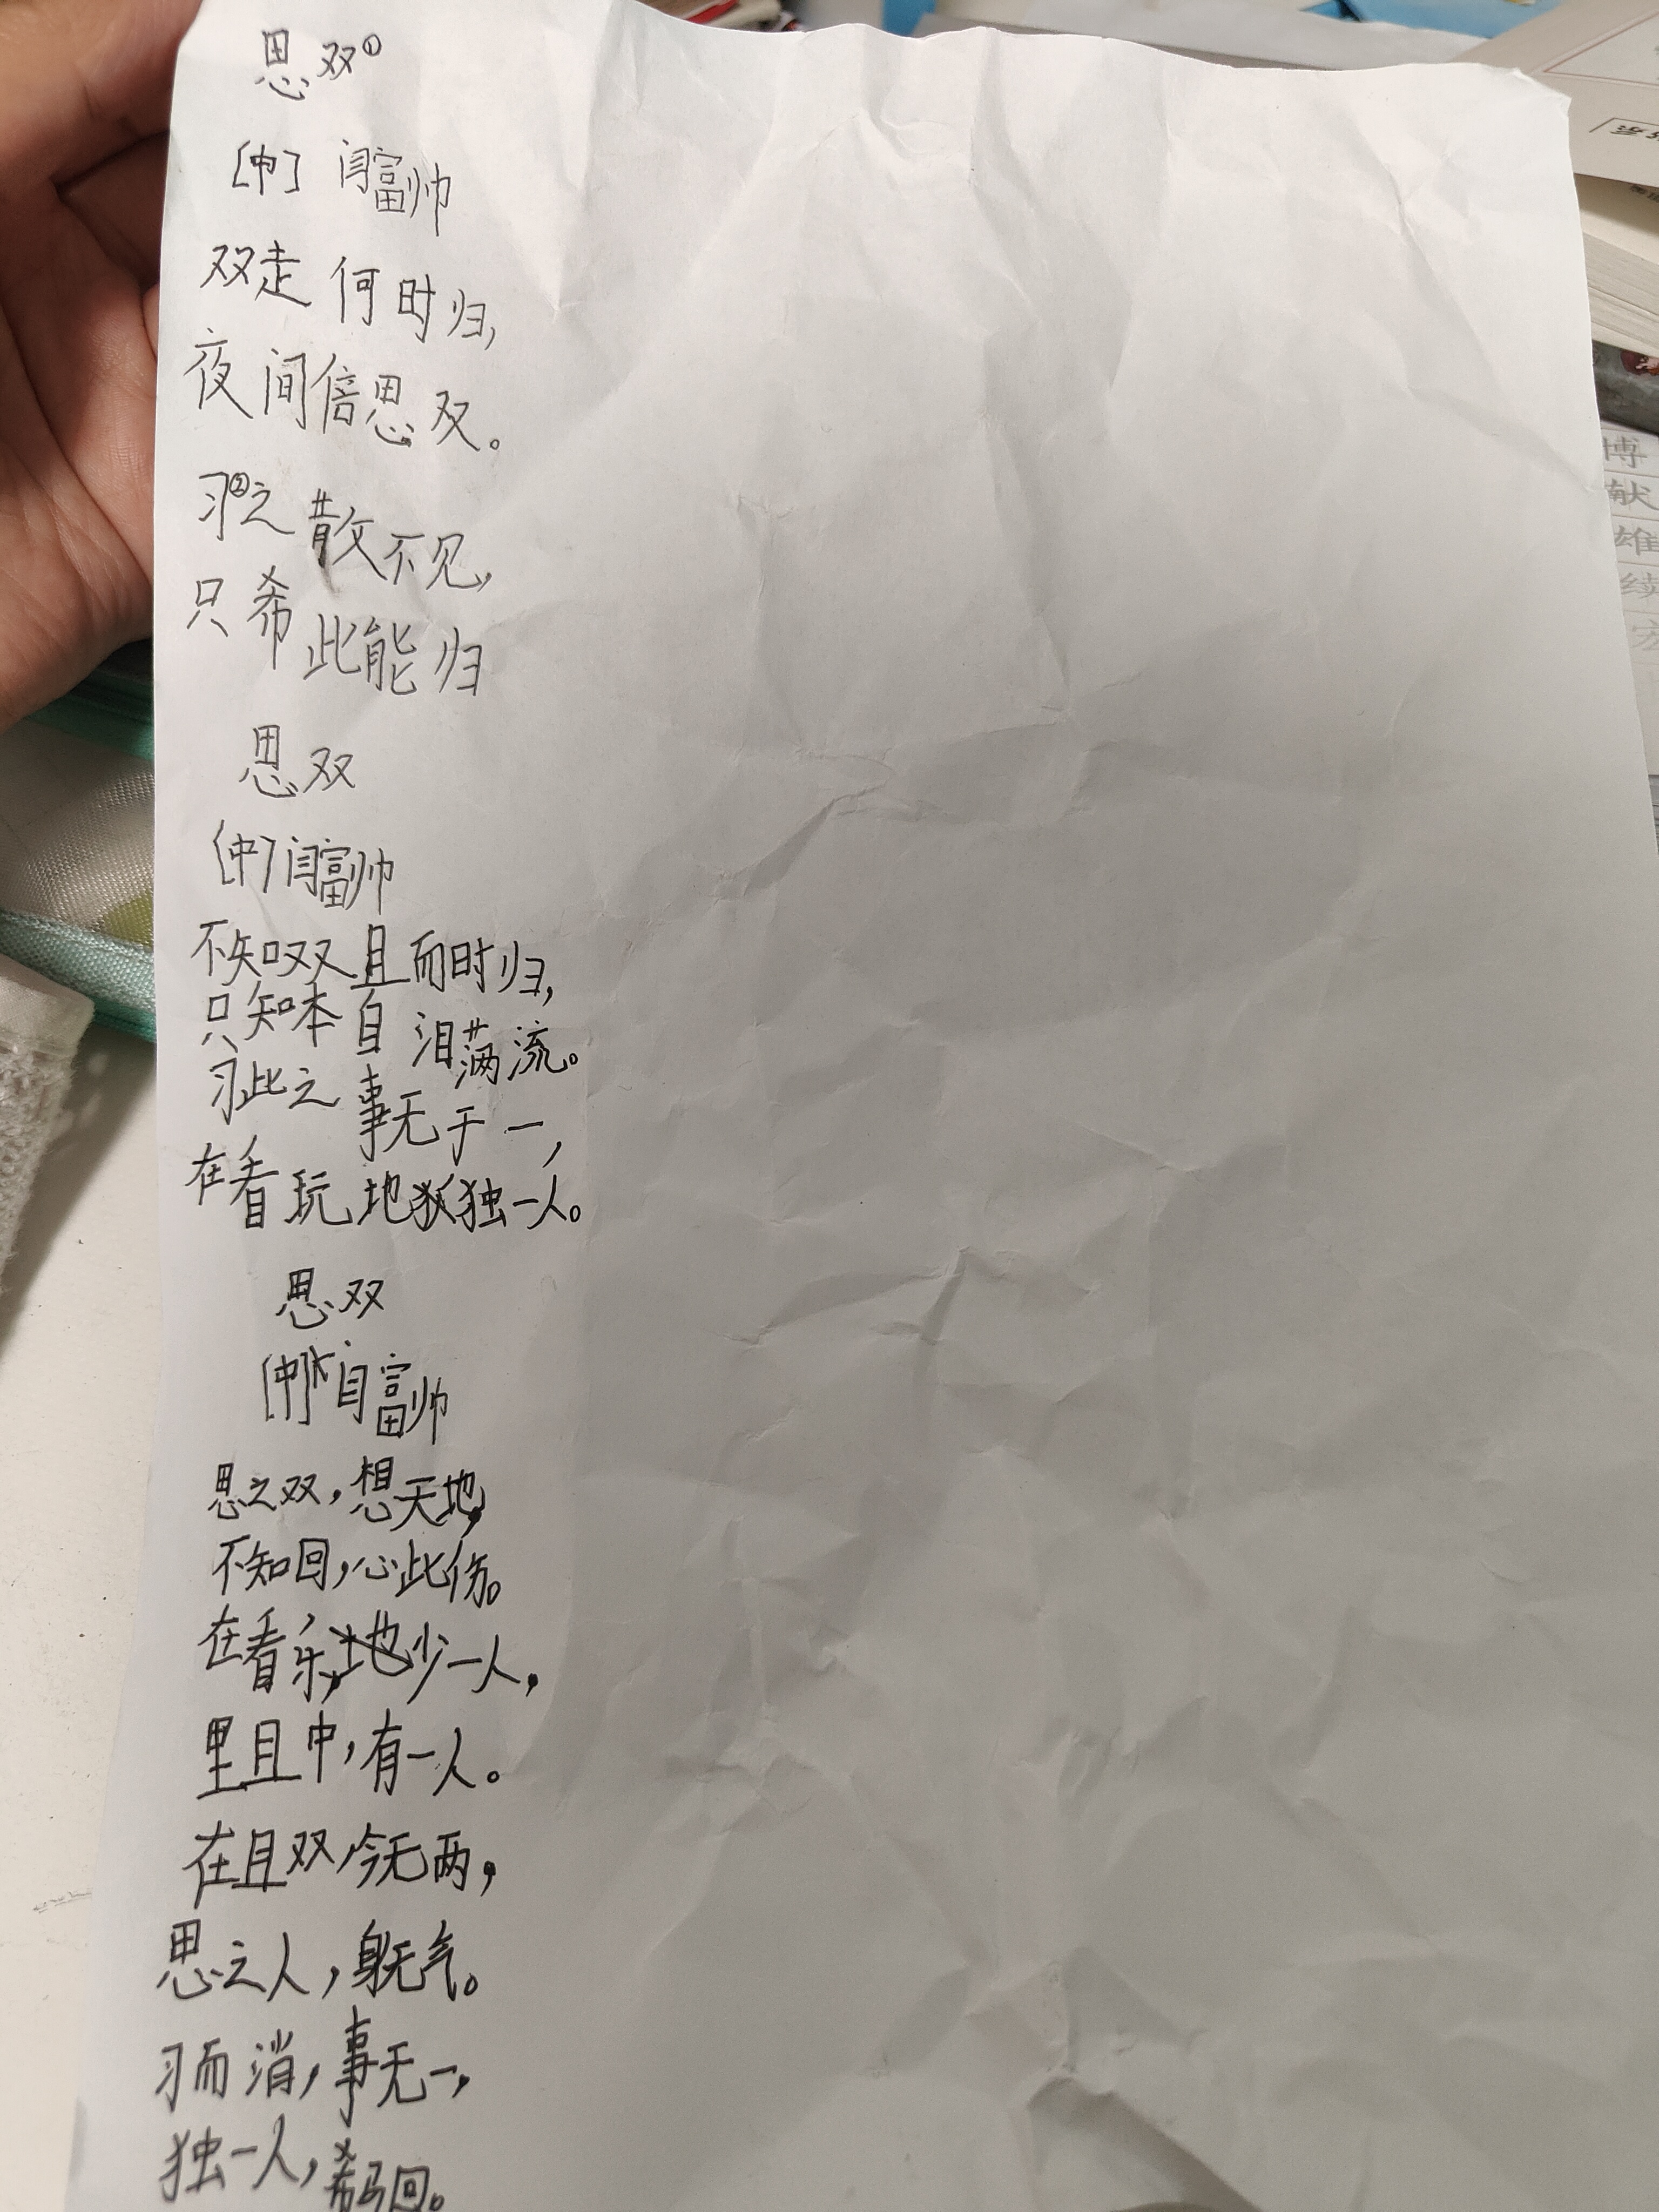 思双①
[中] 闫富帅
双走何时归,
夜间倍思双。
习②之散不见,
只希此能归
思双
[中]闫富帅
不知双且而时归,
只知本自泪满流。
习此之事无于一,
在看玩地独一人。
思双
[中]闫富帅
思之双,想天地,
不知回,心此伤。
在看乐,少一人,
里且中,有一人。
在且双,今无两,
思之人,身无气。
习而消,事无一,
独一人,希回。
博
献
雄
续